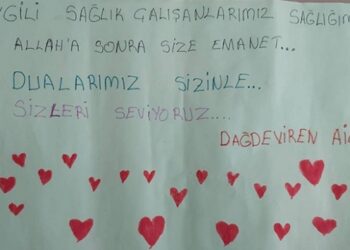 SAĞLIK ÇALIŞANLARIMIZ
ALLAH'A SONRA SİZE EMANET...
DUALARIMIZ SİZİNLE...
SİZLERİ SEVİYORUZ....
DAĞDEVİREN